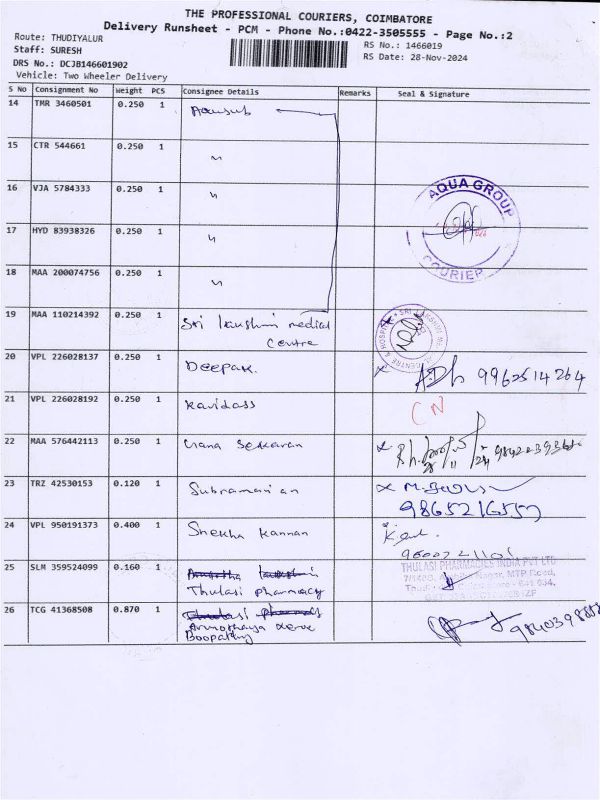 THE PROFESSIONAL COURIERS, COIMBATORE
Delivery Runsheet - PCM - Phone No.:0422-3505555 - Page No.:2
Route: THUDIYALUR
RS No.: 1466019
Staff: SURESH
RS Date: 28-Nov-2024
DRS No.: DCJB146601902
Vehicle: Two Wheeler Delivery
S No Consignment No Weight PCS Consignee Details Remarks Seal & Signature
14 TMR 3460501 0.250 1
15 CTR 544661 0.250 1 "
16 VJA 5784333 0.250 1 "
AQUA GROUP
17 HYD 83938326 0.250 1 "
COURIER
18 MAA 200074756 0.250 1 "
19 MAA 110214392 0.250 1 Sri Lakshmi medical
Centre
20 VPL 226028137 0.250 1 Deepak. 9962514264
21 VPL 226028192 0.250 1 Kavidass CN
22 MAA 576442113 0.250 1 Gana Sekaran
23 TRZ 42530120 0.120 1 Subramanian
24 VPL 950191373 0.400 1 Shekha Kannan
25 SLM 359524099 0.160 1
Thulasi Pharmacy
THULASI PHARMACIES INDIA PVT LTD
Nagar, MTP Road,
26 TCG 41368508 0.870 1 Thulasi Pharmacy
Boopathy